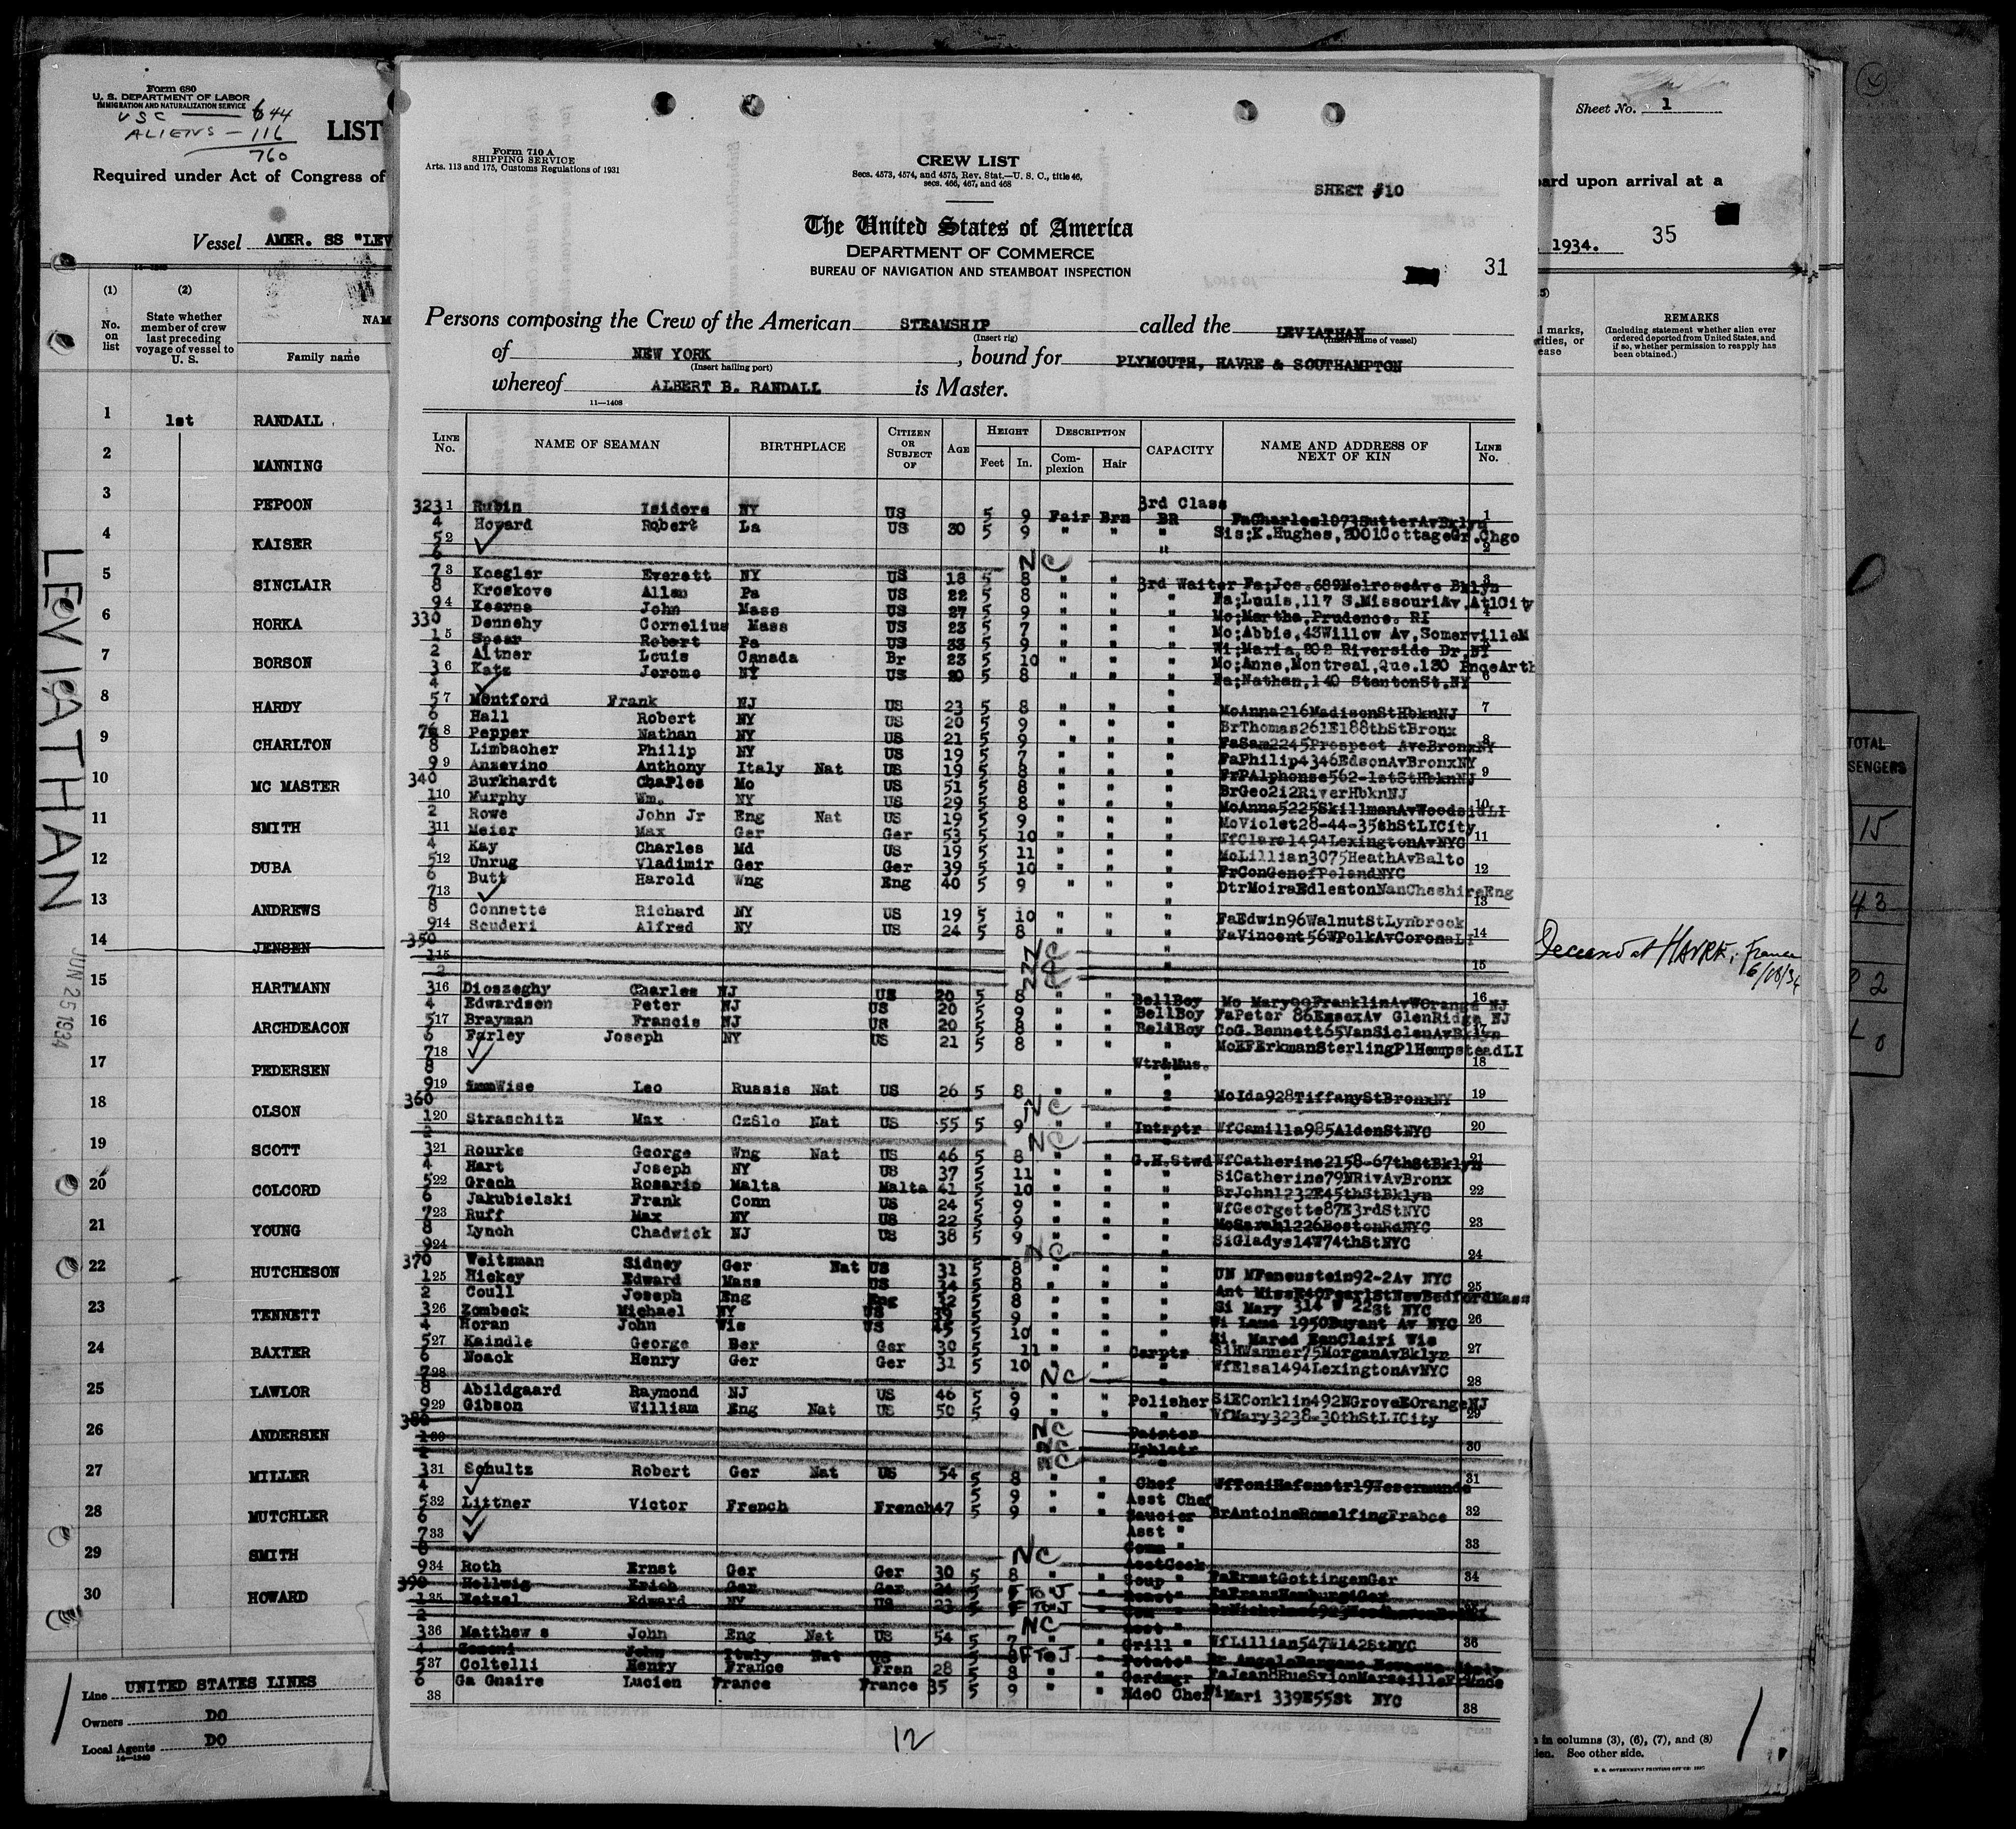 Form 680
U. S. DEPARTMENT OF LABOR
IMMIGRATION AND NATURALIZATION SERVICE
USC — 644
ALIENS — 116
760
LIST
Required under Act of Congress of
Vessel AMER. SS "LEV
(1) (2)
No. on list
State whether member of crew last preceding voyage of vessel to U. S.
NAM
Family name
1 1st RANDALL
2 MANNING
3 PEPOON
4 KAISER
5 SINCLAIR
6 HORKA
7 BORSON
8 HARDY
9 CHARLTON
10 MC MASTER
11 SMITH
12 DUBA
13 ANDREWS
14 JENSEN
15 HARTMANN
16 ARCHDEACON
17 PEDERSEN
18 OLSON
19 SCOTT
20 COLCORD
21 YOUNG
22 HUTCHESON
23 TENNETT
24 BAXTER
25 LAWLOR
26 ANDERSEN
27 MILLER
28 MUTCHLER
29 SMITH
30 HOWARD
LEVIATHAN
JUN 25 1934
Line UNITED STATES LINES
Owners DO
Local Agents DO
Form 710 A
SHIPPING SERVICE
Arts. 113 and 175, Customs Regulations of 1931
CREW LIST
Secs. 4573, 4574, and 4575, Rev. Stat.—U. S. C., title 46,
secs. 466, 467, and 468
SHEET #10
The United States of America
DEPARTMENT OF COMMERCE
BUREAU OF NAVIGATION AND STEAMBOAT INSPECTION
31
Persons composing the Crew of the American STEAMSHIP called the LEVIATHAN
(Insert rig) (Insert name of vessel)
of NEW YORK, bound for PLYMOUTH, HAVRE & SOUTHAMPTON
(Insert hailing port)
whereof ALBERT B. RANDALL is Master.
11—1408
LINE No. NAME OF SEAMAN BIRTHPLACE CITIZEN OR SUBJECT OF AGE HEIGHT Feet In. DESCRIPTION Complexion Hair CAPACITY NAME AND ADDRESS OF NEXT OF KIN LINE No.
3rd Class
323 1 Rubin Isidore NY US 5 9 Fair Brn BR FaCharles1073SutterAvBklyn 1
4 Howard Robert La US 30 5 9 " " " Sis;K.Hughes, Cottage Gr.Chgo
5 2 " 2
6 NC
7 3 Koegler Everett NY US 18 5 8 " " 3rd Waiter Fa;Jos.689MelroseAve Bklyn 3
8 Kroskove Allan Pa US 22 5 8 " " " Fa;Louis,117 S.MissouriAv.AtlCity
9 4 Kearns John Mass US 27 5 9 " " " Mo;Martha,Prudence. RI 4
330 Dennehy Cornelius Mass US 23 5 7 " " " Mo;Abbie,43Willow Av,SomervilleM
1 5 Spear Robert Pa US 33 5 9 " " " Wi;Maria,202 Riverside Dr,NY
2 Altner Louis Canada Br 23 5 10 " " " Mo;Anne,Montreal,Que.130
3 6 Katz Jerome NY US 20 5 8 " " " Fa;Nathan,140 StantonSt.NY 6
4
5 7 Montford Frank NJ US 23 5 8 " " " MoAnna216MadisonStHbknNJ 7
6 Hall Robert NY US 20 5 9 " " " BrThomas261E188thStBronx
7 8 Pepper Nathan NY US 21 5 9 " " " FaSam2245Prospect AveBronxNY 8
8 Limbacher Philip NY US 19 5 7 " " " FaPhilip4346EdsonAvBronxNY
9 9 Anzevino Anthony Italy Nat US 19 5 8 " " " FrPAlphonse562-1stStHbknNJ 9
340 Burkhardt Charles Mo US 51 5 8 " " " BrGeo212RiverHbknNJ
1 10 Murphy Wm. NY US 29 5 8 " " " MoAnna5225SkillmanAvWoodsidLI 10
2 Rowe John Jr Eng Nat US 19 5 9 " " " MoViolet28-44-35thStLICity
3 11 Meier Max Ger Ger 53 5 10 " " " WfClara1494LexingtonAvNYC 11
4 Kay Charles Md US 19 5 11 " " " MoLillian3075HeathAvBalto
5 12 Unrug Vladimir Ger Ger 39 5 10 " " " FrConGenofPolandNYC 12
6 Butt Harold Wng Eng 40 5 9 " " " DtrMoiraEdlestonNanCheshireEng
7 13 13
8 Connette Richard NY US 19 5 10 " " " FaEdwin96WalnutStLynbrook
9 14 Scuderi Alfred NY US 24 5 8 " " " FaVincent56WPolkAvCoronaLI 14
350 NC
1 15 NC 15
2 NC
3 16 Dioszeghy Charles NJ US 20 5 8 " " BellBoy Mo Mary99FranklinAvWOrange NJ 16
4 Edwardsen Peter NJ US 20 5 9 " " BellBoy FaPeter 86EssexAv GlenRidge NJ
5 17 Brayman Francis NJ US 20 5 8 " " BellBoy CoG.Bennett65VanSiclenAvBklyn 17
6 Farley Joseph NY US 21 5 8 " " " MoEFErkmanSterlingPlHempsteadLI
7 18 Wtr&Mus. 18
8 "
9 19 Wise Leo Russia Nat US 26 5 8 " " 2 MoIda928TiffanyStBronxNY 19
360 NC
1 20 Straschitz Max CzSlo Nat US 55 5 9 " " Intrptr WfCamilla985AldenStNYC 20
2 NC
3 21 Rourke George Wng Nat US 46 5 8 " " G.H.Stwd WfCatherine2158-67thStBklyn 21
4 Hart Joseph NY US 37 5 11 " " " SiCatherine79NRivAvBronx
5 22 Grech Rosario Malta Malta 41 5 10 " " " BrJohn1232E45thStBklyn 22
6 Jakubielski Frank Conn US 24 5 9 " " " WfGeorgette87E3rdStNYC
7 23 Ruff Max NY US 22 5 9 " " " MoSarah1226BostonRdNYC 23
8 Lynch Chadwick NJ US 38 5 9 " " " SiGladys14W74thStNYC
9 24 NC 24
370 Weitzman Sidney Ger Nat US 31 5 8 " " " UN MFeneustein92-2Av NYC
1 25 Hickey Edward Mass US 5 8 " " " Ant PearlStNewBedfordMass 25
2 Coull Joseph Eng Eng 5 8 " " " Si Mary 314 W 22St NYC
3 26 Zombeck Michael NY US 5 9 " " " Wi Lama Av NYC 26
4 Horan John Wis US 45 5 10 " " " Si. Wis
5 27 Kaindle George Ber Ger 30 5 11 " " Carptr SiHWanner75MorganAvBklyn 27
6 Noack Henry Ger Ger 31 5 10 " " " WfElsa1494LexingtonAvNYC
7 28 NC 28
8 Abildgaard Raymond NJ US 46 5 9 " " Polisher SiEConklin492NGroveEOrangeNJ
9 29 Gibson William Eng Nat US 50 5 9 " " " WfMary3238-30thStLICity 29
380 NC Painter
1 30 NC Uphlstr 30
2 NC "
3 31 Schultz Robert Ger Nat US 54 5 8 " " Chef 31
4 5 9 " " Asst Chef
5 32 Littner Victor French French 47 5 9 " " Saucier BrAntoineRomelfingFrabce 32
6 Asst "
7 33 Comm " 33
8 NC AsstCook
9 34 Roth Ernst Ger Ger 30 5 8 " " Soup " FaErnstGottingenGer 34
390 Hellwig Erich Ger Ger 24 5 F To J " Roast" FaFranzHamburgGer
1 35 Hetzel Edward NY US 23 5 F To J "
2 NC Asst "
3 36 Matthew s John Eng Nat US 54 5 7 " " Grill " WfLillian547W142StNYC 36
4 John Italy Nat US 5 8 F To J " Potato"
5 37 Coltelli Henry France Fren 28 5 8 " " Gardmgr 37
6 Ga Gnaire Lucien France France 35 5 9 " " HdeO Chef Wi Mari 339E55St NYC
38 38
12
Sheet No. 1
ard upon arrival at a
1934. 35
REMARKS
(Including statement whether alien ever ordered deported from United States, and if so, whether permission to reapply has been obtained.)
marks,
rities, or
ease
Deceased at HAVRE, France
6/18/34
TOTAL
SENGERS
15
43
2
0
in columns (3), (6), (7), and (8)
ien. See other side.